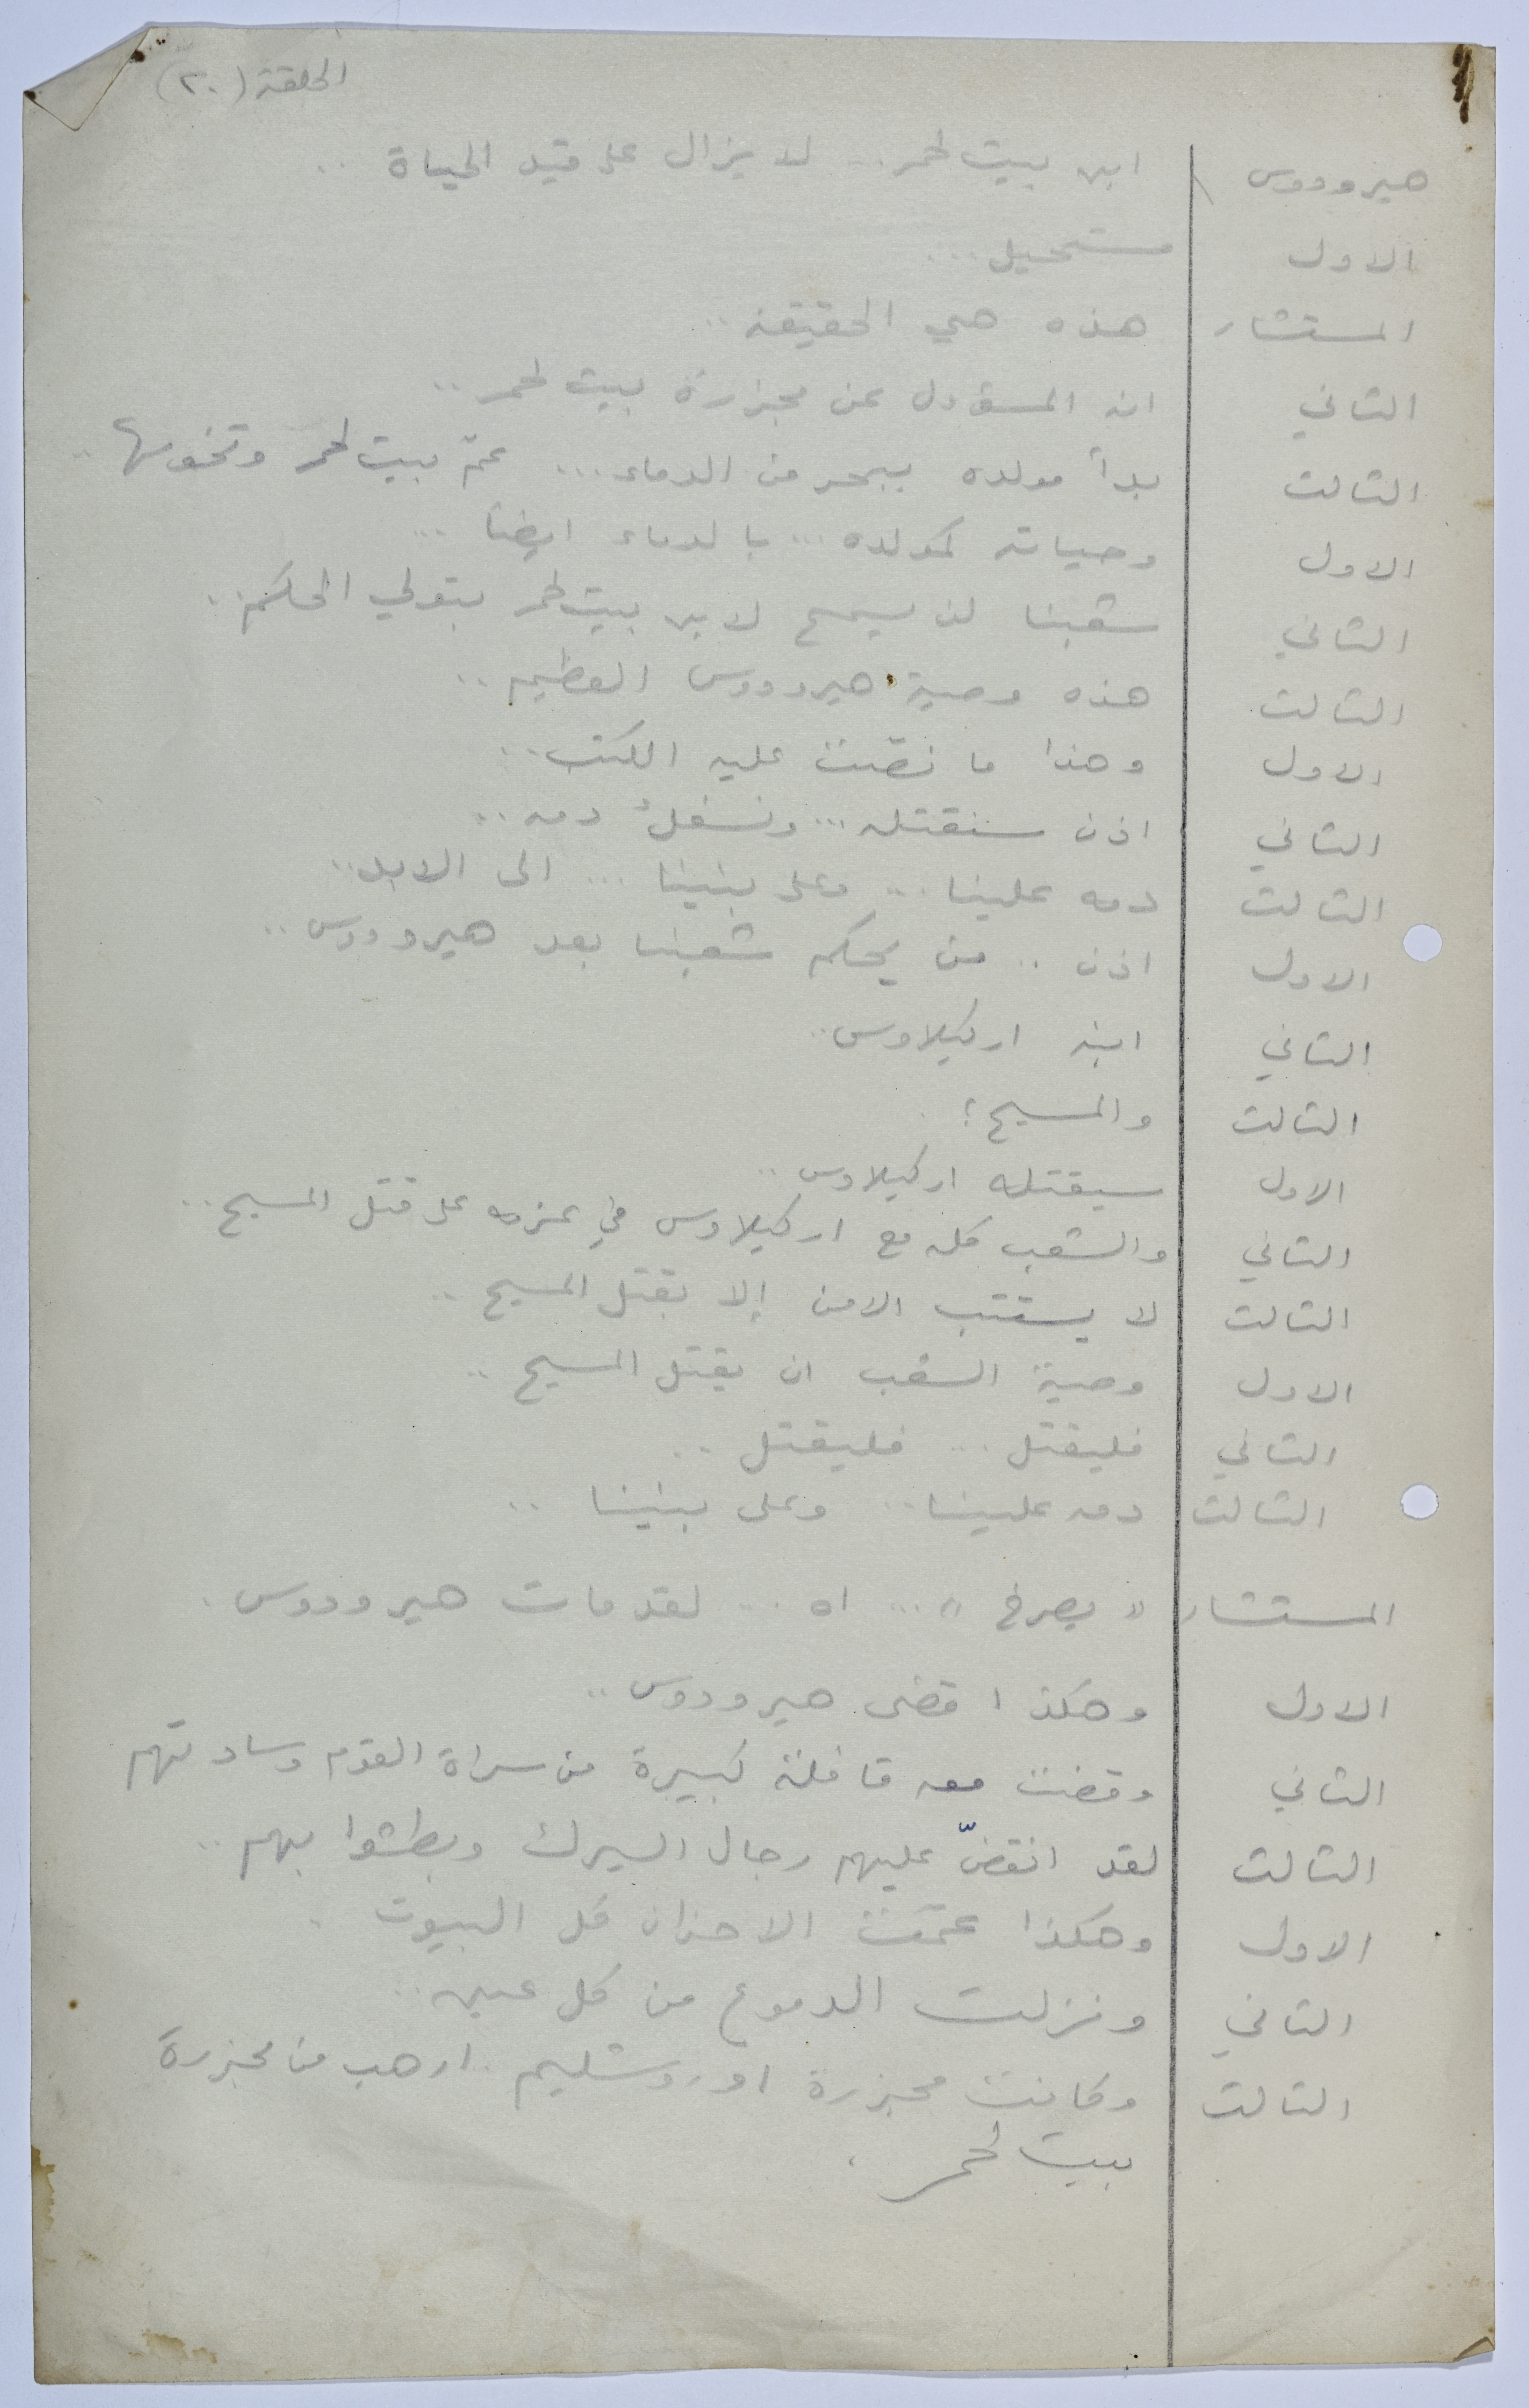 الحلقة (٢٠)
هيرودوس ابن بيت لحم .. لا يزال على قيد الحياة ..
الاول مستحيل ...
المستشار هذه هي الحقيقة ..
الثاني انه المسؤول عن مجزرة بيت لحم ..
الثالث بدأ مولده ببحر من الدماء ... عمّ بيت لحم وتخومها ..
الاول وحياته كمولده ... بالدماء ايضا ...
الثاني شعبنا لن يسمح لابن بيت لحم بتولي الحكم ..
الثالث هذه وصية هيرودوس العظيم ..
الاول وهذا ما نصّت عليه الكتب ..
الثاني اذن سنقتله ... ونسفك دمه ..
الثالث دمه علينا ... وعلى بنينا ... الى الابد ..
الاول اذن .. من يحكم شعبنا بعد هيرودوس ..
الثاني ابنه اركيلاوس ..
الثالث والمسيح ؟
الاول سيقتله اركيلاوس ..
الثاني والشعب كله مع اركيلاوس في عزمه على قتل المسيح ..
الثالث لا يستتب الامن إلا بقتل المسيح ..
الاول وصية الشعب ان يقتل المسيح ..
الثاني فليقتل ... فليقتل ..
الثالث دمه علينا .. وعلى بنينا ..
المستشار " يصرخ " ... اه ... لقد مات هيرودوس .
الاول وهكذا قضى هيرودوس ..
الثاني وقضت معه قافلة كبيرة من سراة القوم وسادتهم
الثالث لقد انقضّ عليهم رجال السيرك وبطشوا بهم ..
الاول وهكذا عمّت الاحزان كل البيوت .
الثاني ونزلت الدموع من كل عين ..
الثالث وكانت مجزرة اورشليم . ارهب من مجزرة
بيت لحم .